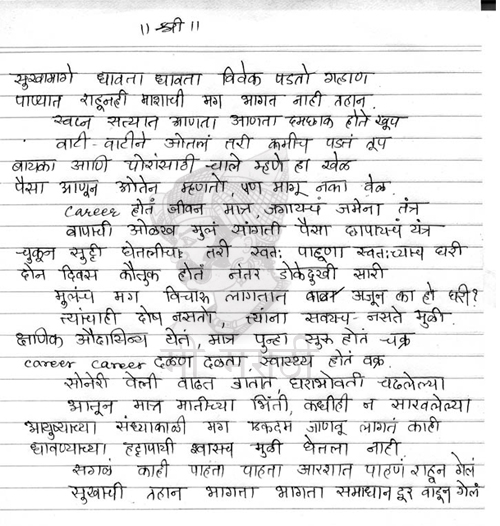 ॥ श्री ॥
सुखामागे धावता धावता विवेक पडतो गहाण
पाण्यात राहूनही माशाची मग भागत नाही तहान.
स्वप्न सत्यात आणता आणता दमछाक होते खूप
वाटी-वाटीने ओतलं तरी कमीच पडतं तूप
बायका आणि पोरांसाठी चाले म्हणे हा खेळ
पैसा आणून ओतेन म्हणतो, पण मागू नका वेळ.
career होतं जीवन मात्र, जगायचं जमेना तंत्र
बापाची ओळख मुलं सांगती पैसा छापायचं यंत्र
चुकून सुट्टी घेतलीच तरी स्वतः पाहूणा स्वतःच्याच घरी
दोन दिवस कौतुक होतं नंतर डोकेदुखी सारी
मुलंच मग विचारू लागतात बाबा अजून का हो घरी?
त्यांचाही दोष नसतो, त्यांना सवयच नसते मुळी.
क्षणिक औदासिन्य येतं, मात्र पुन्हा सुरू होतं चक्र
career career दळण दळता स्वास्थ्य होतं वक्र.
सोनेरी वेली वाढत जातात, घराभोवती चढलेल्या
आतून मात्र मातीच्या भिंती, कधीही न सारवलेल्या
आयुष्याच्या संध्याकाळी मग एकदम जाणवू लागतं काही
धावण्याच्या हट्टापायी श्वासच मुळी घेतला नाही.
सगळं काही पाहता पाहता आरशात पाहणं राहून गेलं
सुखाची तहान भागता भागता समाधान दूर वाहून गेलं